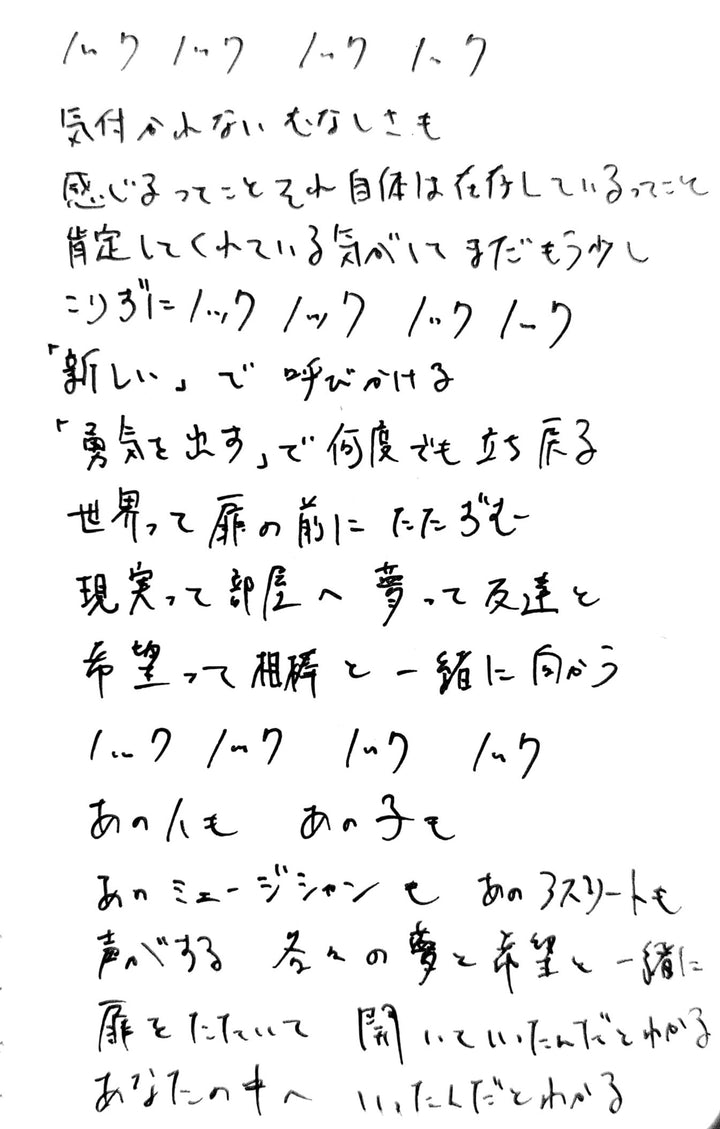 ノック ノック ノック ノック
気付かれない むなしさも
感じるってこと それ自体は存在しているってこと
肯定してくれている気がして まだもう少し
こりずにノック ノック ノック ノック
「新しい」で 呼びかける
「勇気を出す」で何度でも立ち戻る
世界って扉の前に たたずむ
現実って部屋へ 夢って友達と
希望って相棒と一緒に向かう
ノック ノック ノック ノック
あの人も あの子も
あのミュージシャンも あのアスリートも
声がする 各々の夢と希望と一緒に
扉をたたいて 開いていったんだとわかる
あなたの中へ いったんだとわかる